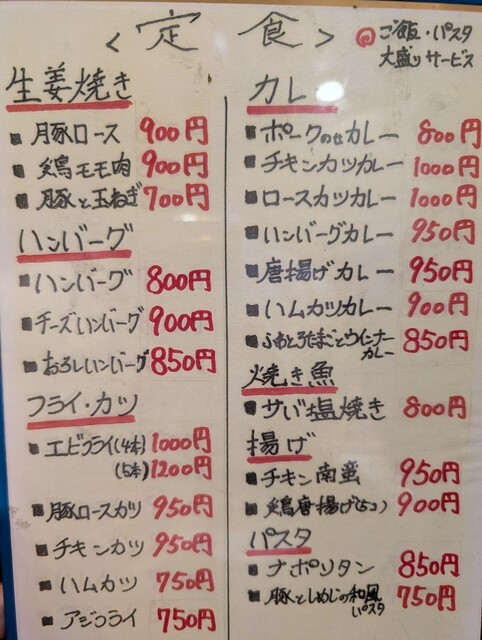 ＜定食＞
ご飯・パスタ
大盛りサービス
生姜焼き
■豚ロース 900円
■鶏モモ肉 900円
■豚と玉ねぎ 700円
ハンバーグ
■ハンバーグ 800円
■チーズハンバーグ 900円
■おろしハンバーグ 850円
フライ・カツ
■エビフライ(4本) 1000円
(5本) 1200円
■豚ロースカツ 950円
■チキンカツ 950円
■ハムカツ 750円
■アジフライ 750円
カレー
■ポークのせカレー 800円
■チキンカツカレー 1000円
■ロースカツカレー 1000円
■ハンバーグカレー 950円
■唐揚げカレー 950円
■ハムカツカレー 900円
■ふわとろたまごとウインナー
カレー 850円
焼き魚
■サバ塩焼き 800円
揚げ
■チキン南蛮 950円
■鶏唐揚げ(5コ) 900円
パスタ
■ナポリタン 850円
■豚としめじの和風
パスタ 750円